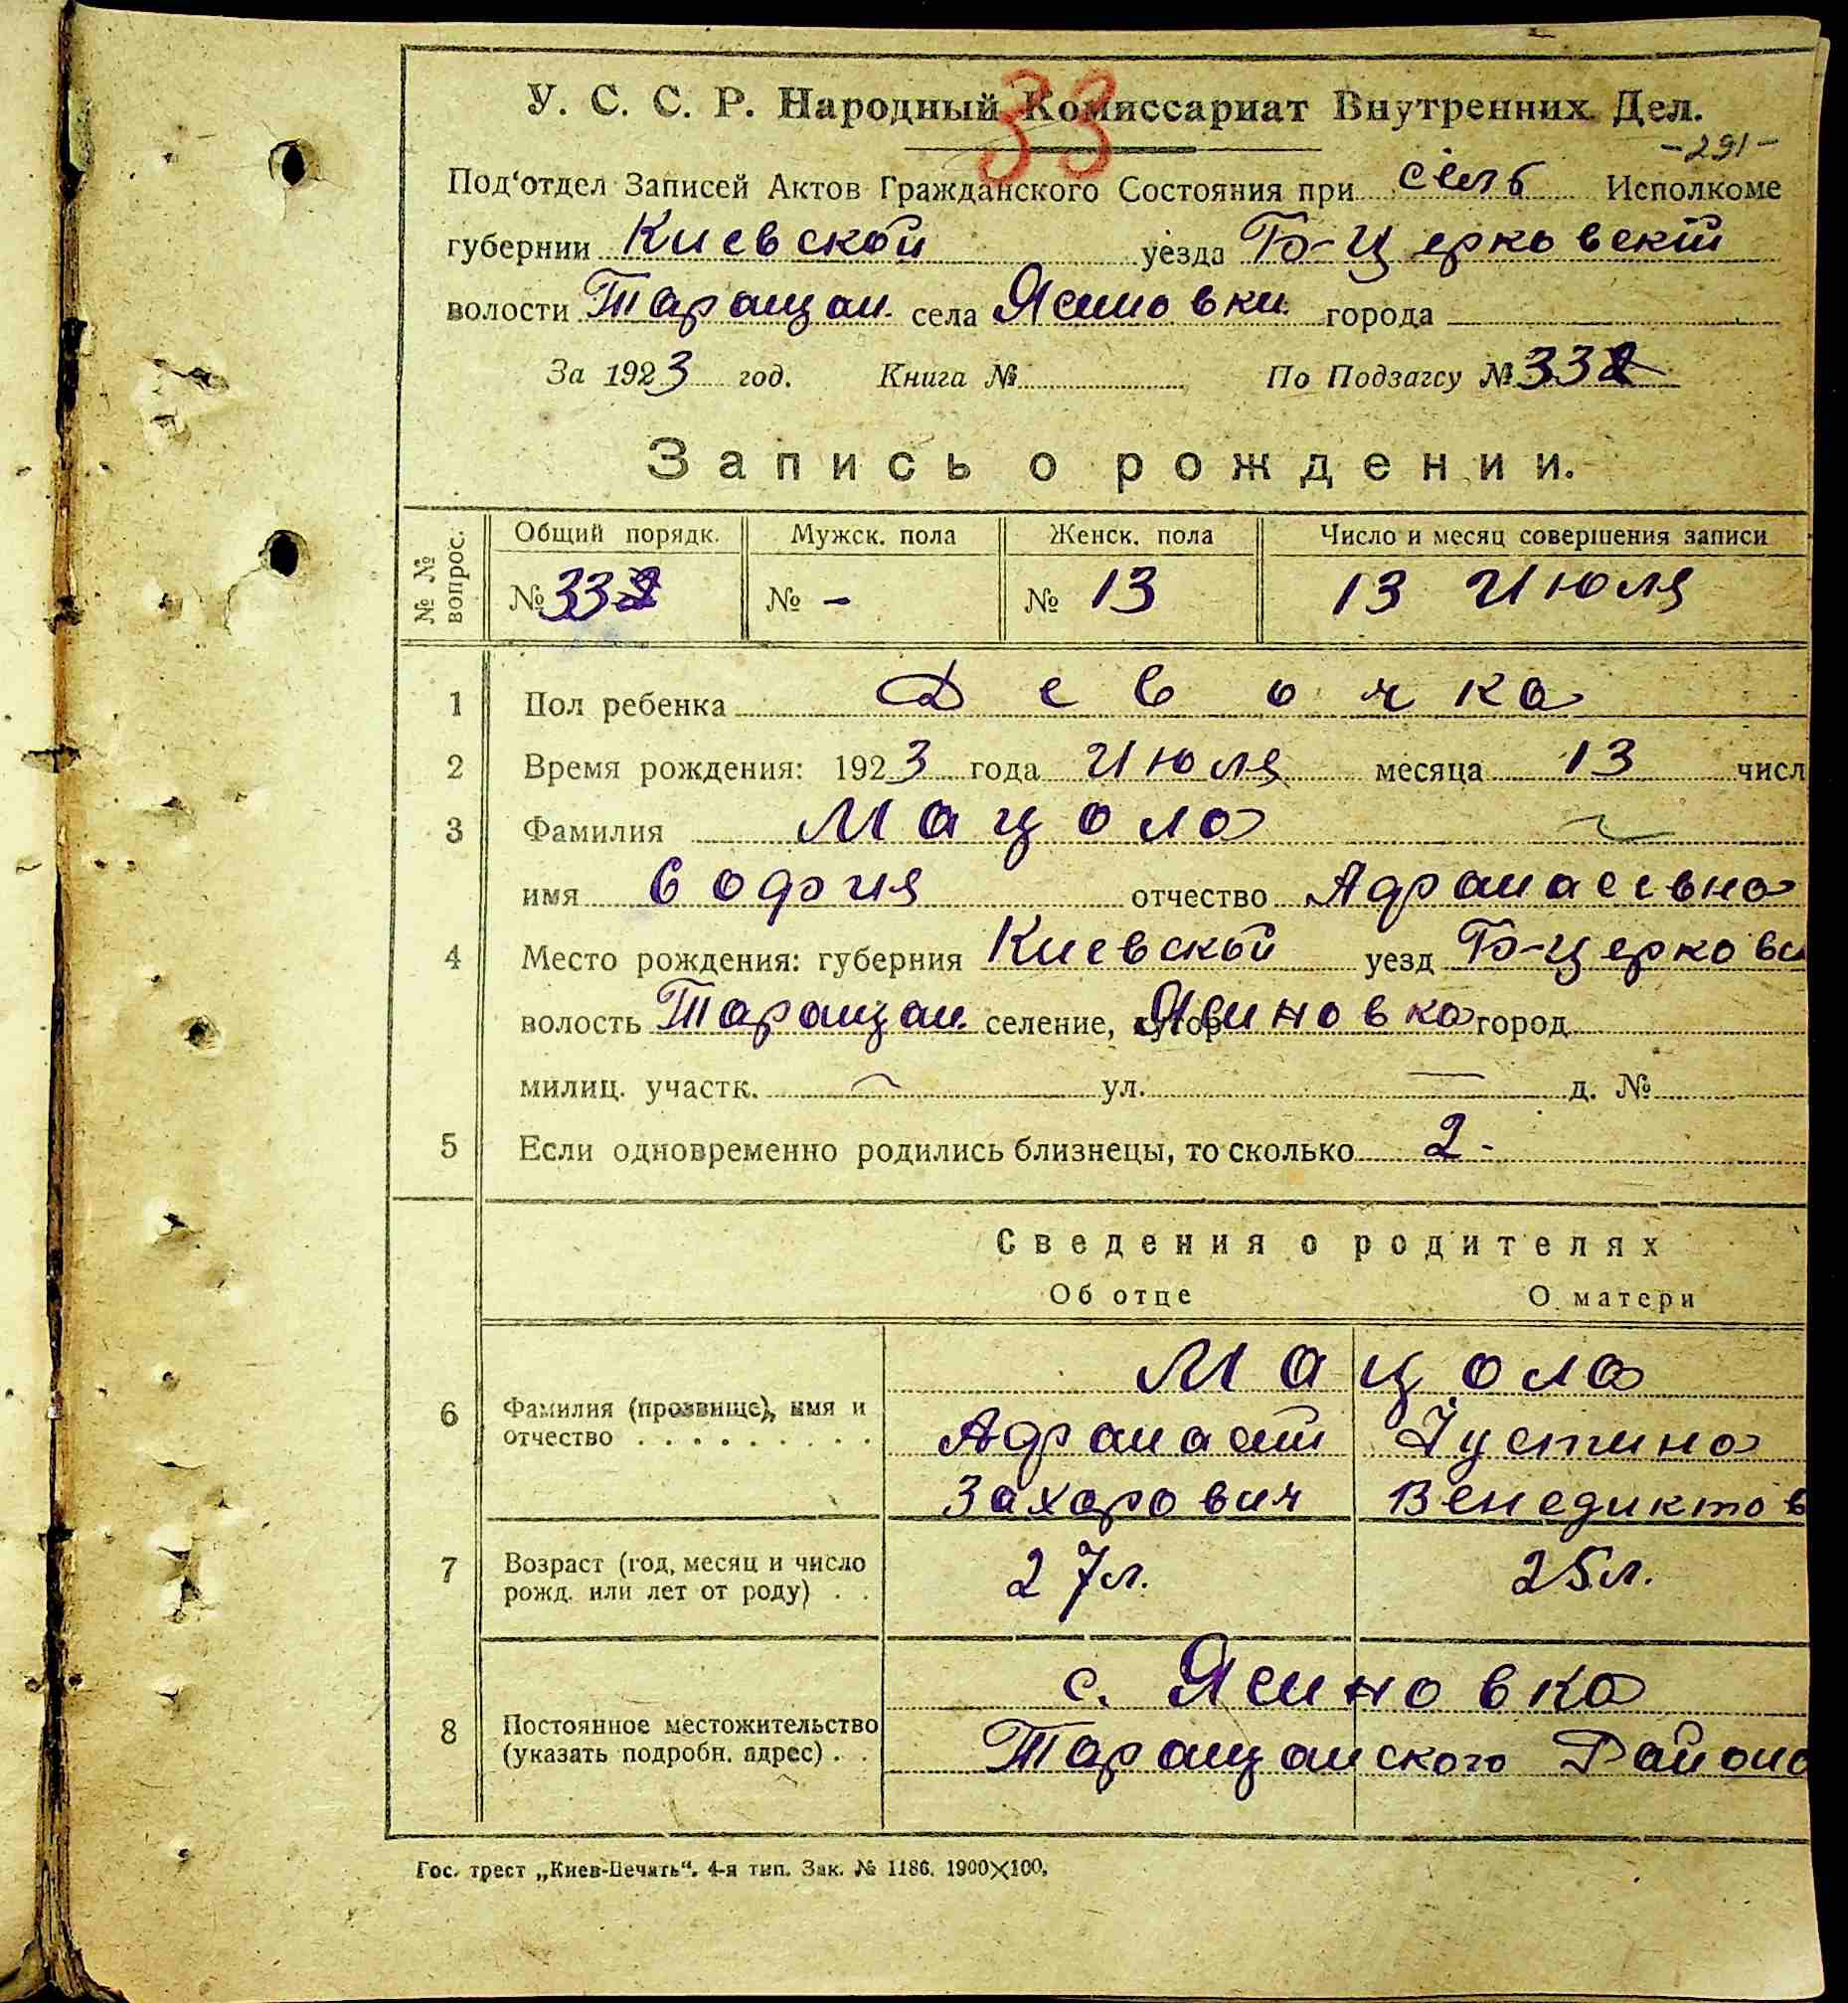 У. С. С. Р. Народный Комиссариат Внутренних Дел.
33
-291-
Под'отдел Записей Актов Гражданского Состояния при сельб Исполкоме
губернии Киевской уезда Б-Церковской
волости Таращан. села Ясиновки города
За 1923 год. Книга № По Подзагсу № 332
Запись о рождении.
№ № вопрос. Общий порядк. Мужск. пола Женск. пола Число и месяц совершения записи
№ 332 № - № 13 13 Июля
1 Пол ребенка Девочка
2 Время рождения: 1923 года Июля месяца 13 числ
3 Фамилия Мацола
имя София отчество Афанасевна
4 Место рождения: губерния Киевской уезд Б-Церковс
волость Таращан. селение, хутор Ясиновка город
милиц. участк. — ул. — д. №
5 Если одновременно родились близнецы, то сколько 2-
Сведения о родителях
Об отце О матери
Мацола
6 Фамилия (прозвище), имя и Афанасий Юстина
отчество . . . . . . . . . Захарович Венедиктов
7 Возраст (год, месяц и число 27 л. 25 л.
рожд. или лет от роду) . .
с. Ясиновка
8 Постоянное местожительство
(указать подробн. адрес) . . Таращанского Района
Гос. трест „Киев-Печать“. 4-я тип. Зак. № 1186. 1900×100.